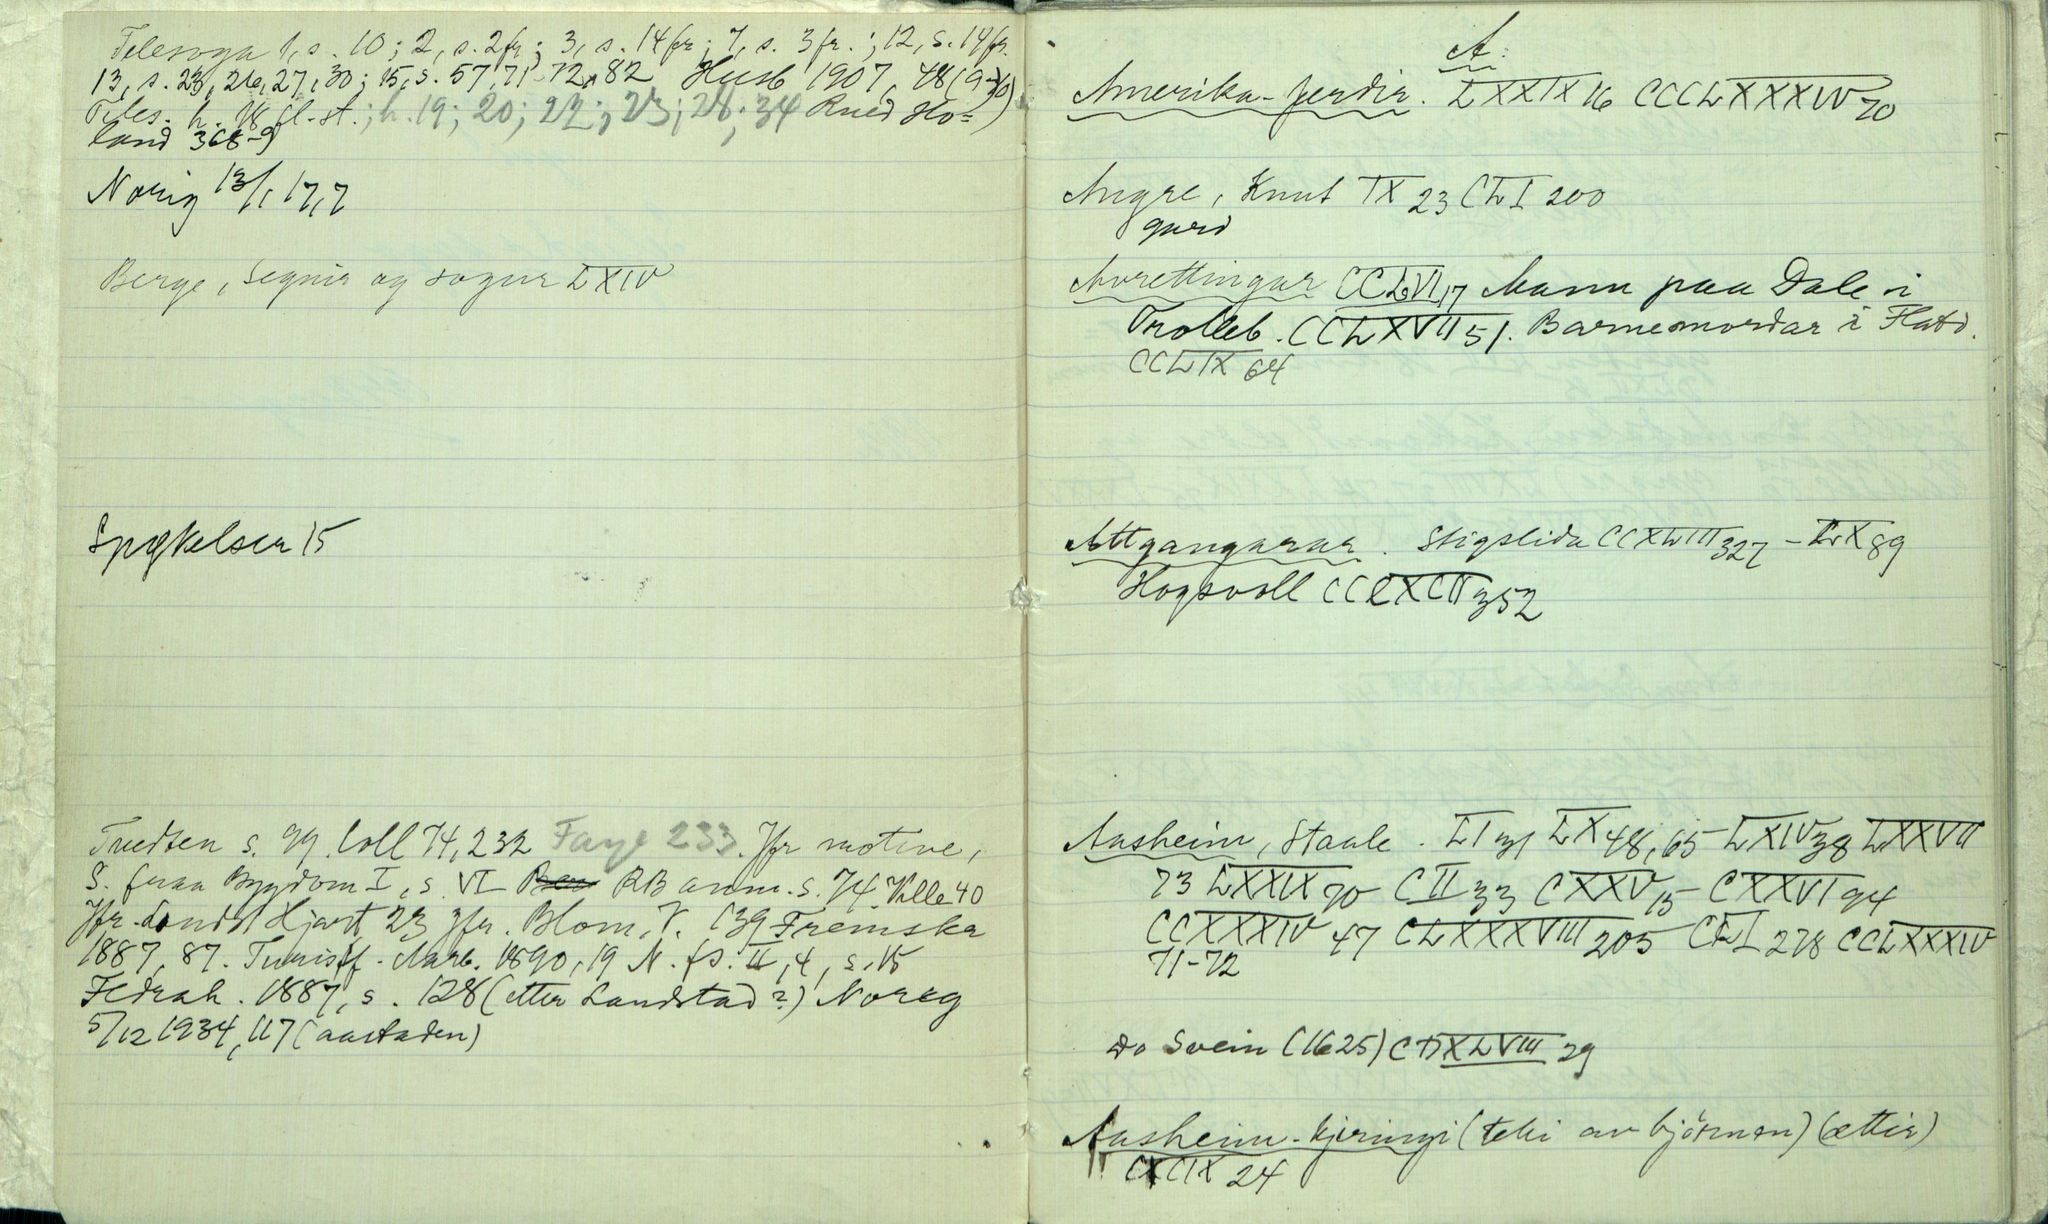 Telesoga 1, s. 10; 2, s. 2 fr; 3, s. 14 fr; 7, s. 3 fr.; 12, s. 14 fr.
13, s. 23, 26, 27, 30; 15, s. 57, 71 72, 82 Husb 1907, 48 (9-30)
Teles. h. 18 fl. st.; h. 19; 20; 22; 23; 28; 34 Rued Ho=
land 368-9
Noreg 13/1 17,7
Berge, Segnir og sogur LXIV
Spøkelser 15
s. 99. Coll 74, 232 Faye 233. Jfr motive,
S. fraa Bygdom I, s. VI RB anm. s. 74. Kille 40
Jfr. Landst Hjart. 23 jfr. Blom, V. 139 Fremskr
1887, 87. Turistf. Aarb. 1890, 19 N. fs. II, 4, s. 15
Fedrah. 1887, s. 128 (etter Landstad?) Noreg
5/12 1934, 117 (aastaden)
A:
Amerika-ferdir. LXXIX 16 CCCLXXXIV 70
Angre, Knut IX 23 CLI 200
gard
Avrettingar CCLVI 17 Mann paa Dale i
Trolleb. CCLXVII 51. Barnemordar i Flatd.
CCLIX 64
Attgangarar. Stigslida CCXLIII 327 – LX 89
Hogsvoll CCLXCII 352
Aasheim, Staale. LI 31 LX 48, 65 LXIV 38 LXXVII
73 LXXIX 70 CII 33 CXXV 15 CXXVI 94
CCXXXIV 47 CLXXXVIII 205 CLI 278 CCLXXXIV
71-72
Do Svein (1625) CDXLVIII 29
Aasheim-kjeringi (teki av bjørnen) (ættir)
CXCIX 24